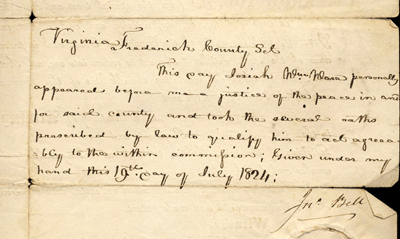 Virginia Frederick County Sct
This day Josiah Wm Ware personally
appeared before me a justice of the peace in and
for said county and took the several oaths
prescribed by law to qualify him to act agreea-
bly to the within commission; Given under my
hand this 19th day of July 1824;
Jno. Bell